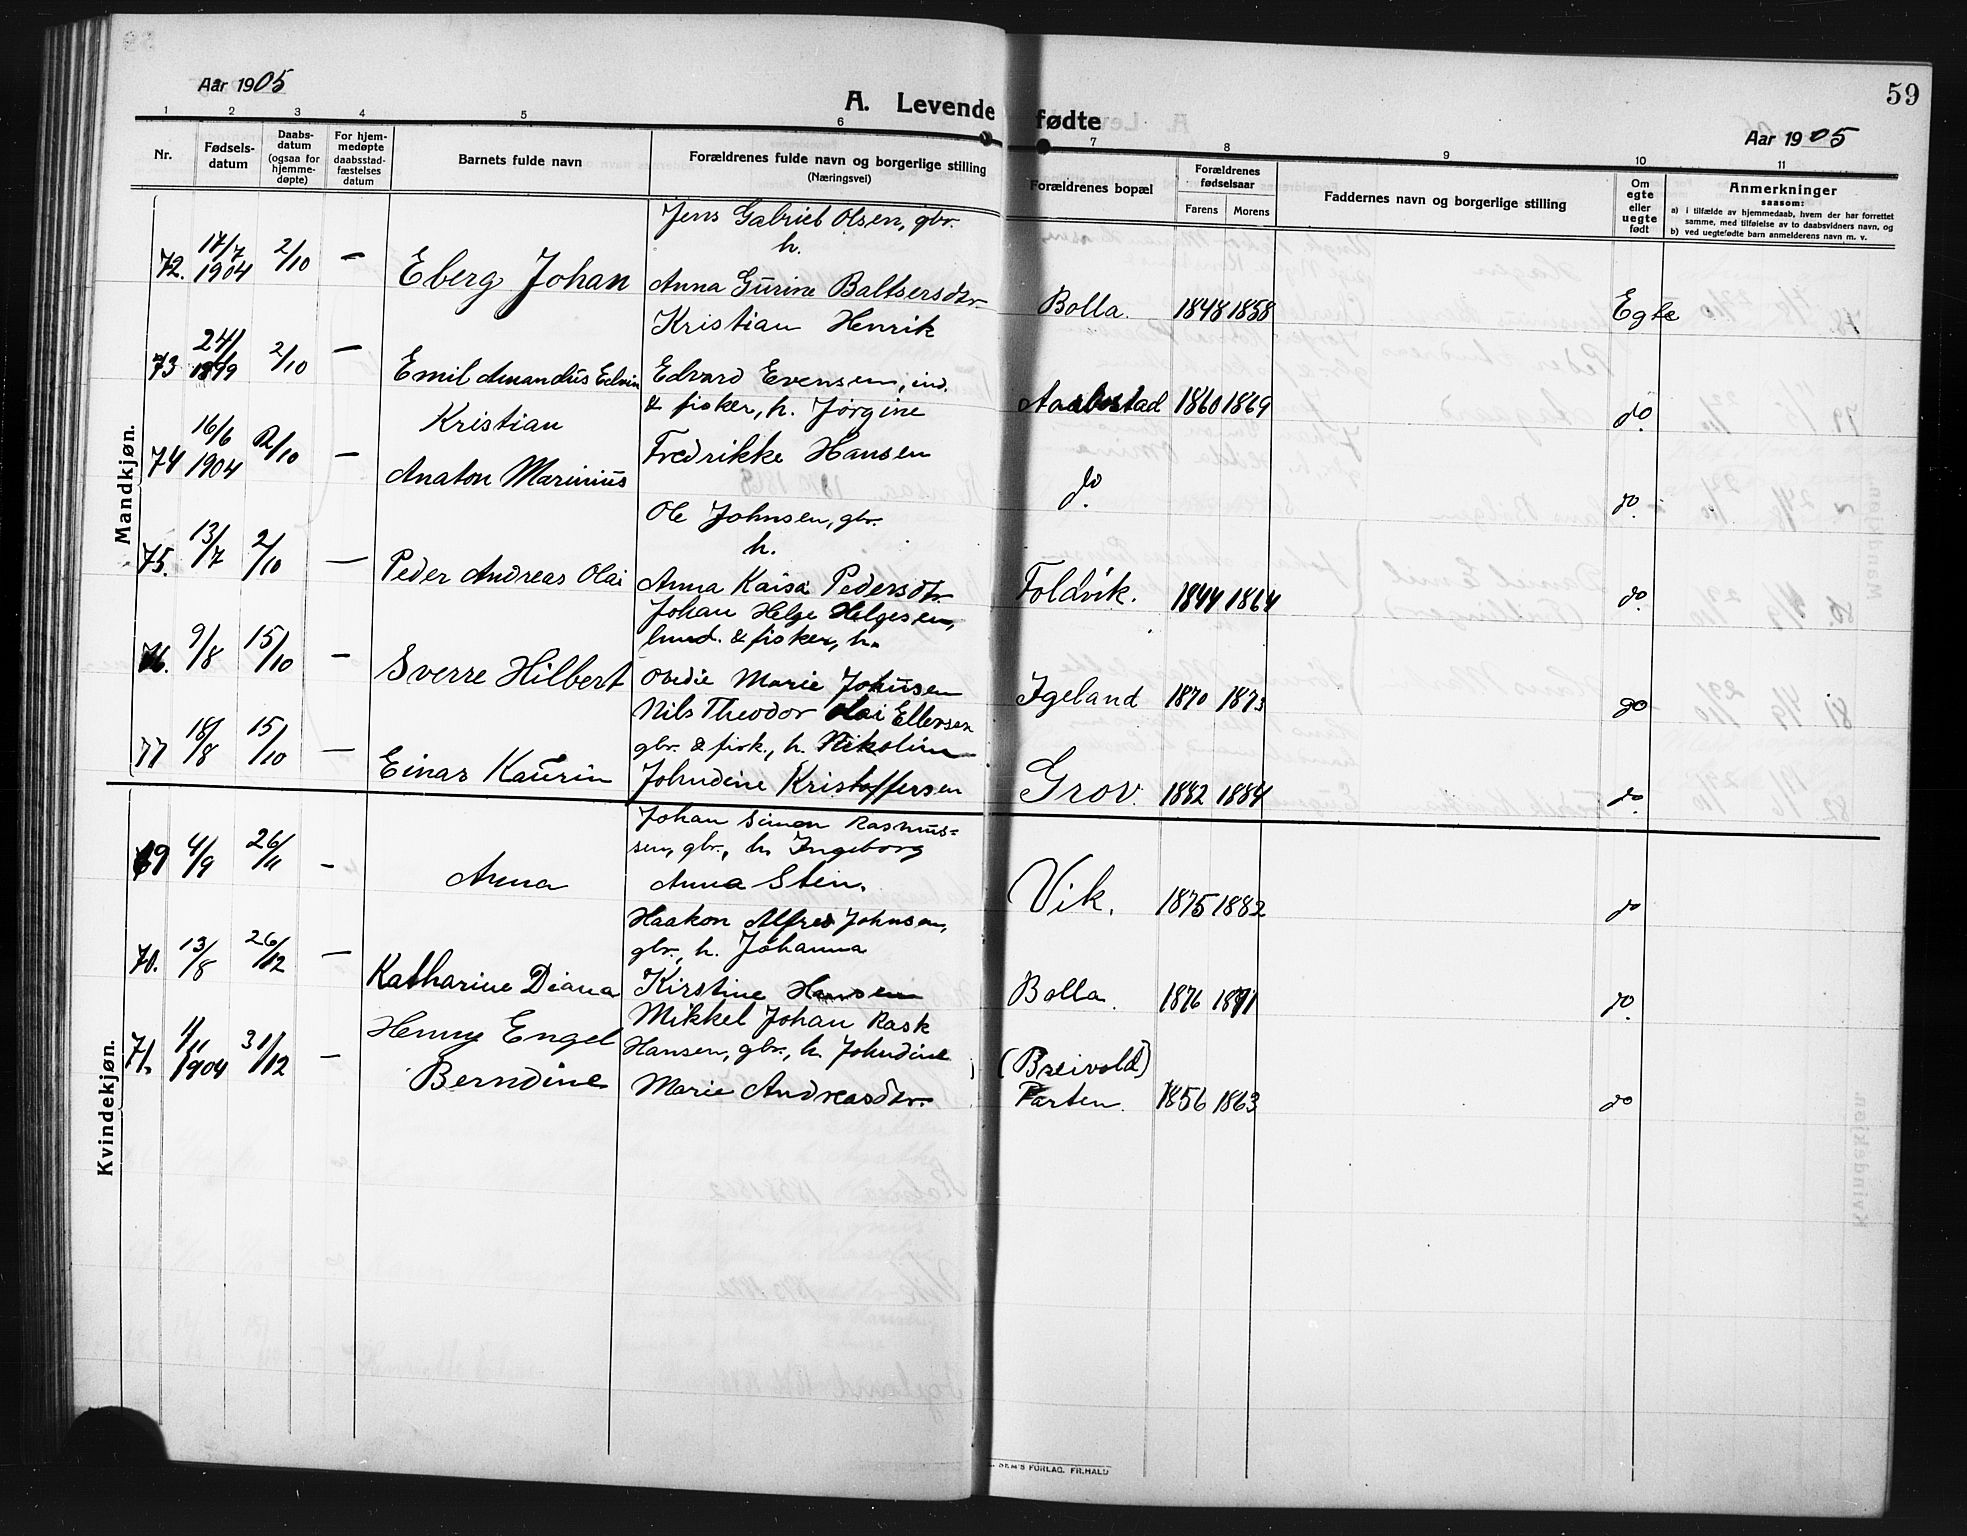 59
Aar 1905
A. Levende fødte
Aar 1905
1 2 3 4 5 6 7 8 9 10 11
Nr.
Fødsels-
datum
Daabs-
datum
(ogsaa for
hjemme-
døpte)
For hjem-
medøpte
daabsstad-
fæstelses
datum
Barnets fulde navn
Forældrenes fulde navn og borgerlige stilling
(Næringsvei)
Forældrenes bopæl
Forældrenes
fødselsaar
Farens Morens
Faddernes navn og borgerlige stilling
Om
egte
eller
uegte
født
Anmerkninger
saasom:
a) i tilfælde av hjemmedaab, hvem der har forrettet
samme, med tilføielse av to daabsvidners navn, og
b) ved uegtefødte barn anmelderens navn m. v.
Mandkjøn.
Jens Gabriel Olsen, gbr.
h.
72. 17/7 1904 2/10 — Eberg Johan Anna Gurine Baltsersdtr. Bolla. 1848 1858 Egte
Kristian Henrik
73 24/1 1899 2/10 — Emil Amandus Edvin Edvard Evensen, ind.
Kristian & fisker, h. Jørgine Aarbostad 1860 1869 do.
74 16/6 1904 2/10 — Anaton Marinius Fredrikke Hansen do do.
Ole Johnsen, gbr.
h.
75. 13/7 2/10 — Peder Andreas Olai Anna Kaisa Pedersdtr. Foldvik. 1844 1864 do.
Johan Helge Helgesen,
ind. & fisker, h.
76. 9/8 15/10 — Sverre Hilbert Ovedie Marie Johnsen Igeland 1870 1873 do
Nils Theodor Olai Ellersen
gbr. & fisk., h. Nikoline
77 18/8 15/10 — Einar Kaurin Johndine Kristoffersen Grov. 1882 1884 do.
Kvindekjøn.
Johan Simon Rasmus=
sen, gbr., h. Ingeborg
69 4/9 26/11 — Anna Anna Stein. Vik. 1875 1882 do
Haakon Alfred Johnsen,
gbr., h. Johanna
70. 13/8 26/12 — Katharine Diana Kirstine Hansen Bolla. 1876 1871 do.
Mikkel Johan Rask
71. 1/11 1904 31/12 — Henny Engel Hansen, gbr., h. Johndine (Breivold)
Berndine Marie Andreasdtr. Parten. 1856 1863 do
SEM'S FORLAG. FR. HALD